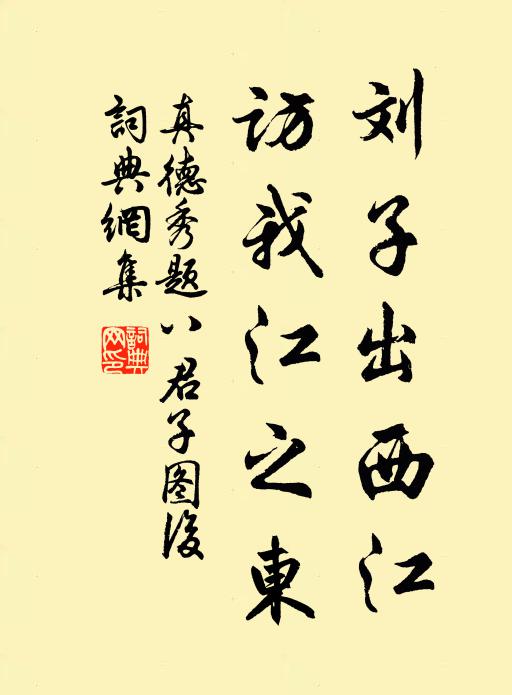 刘子出西江
访我江之東
真德秀题八君子图後
詞典網集
詞典网印